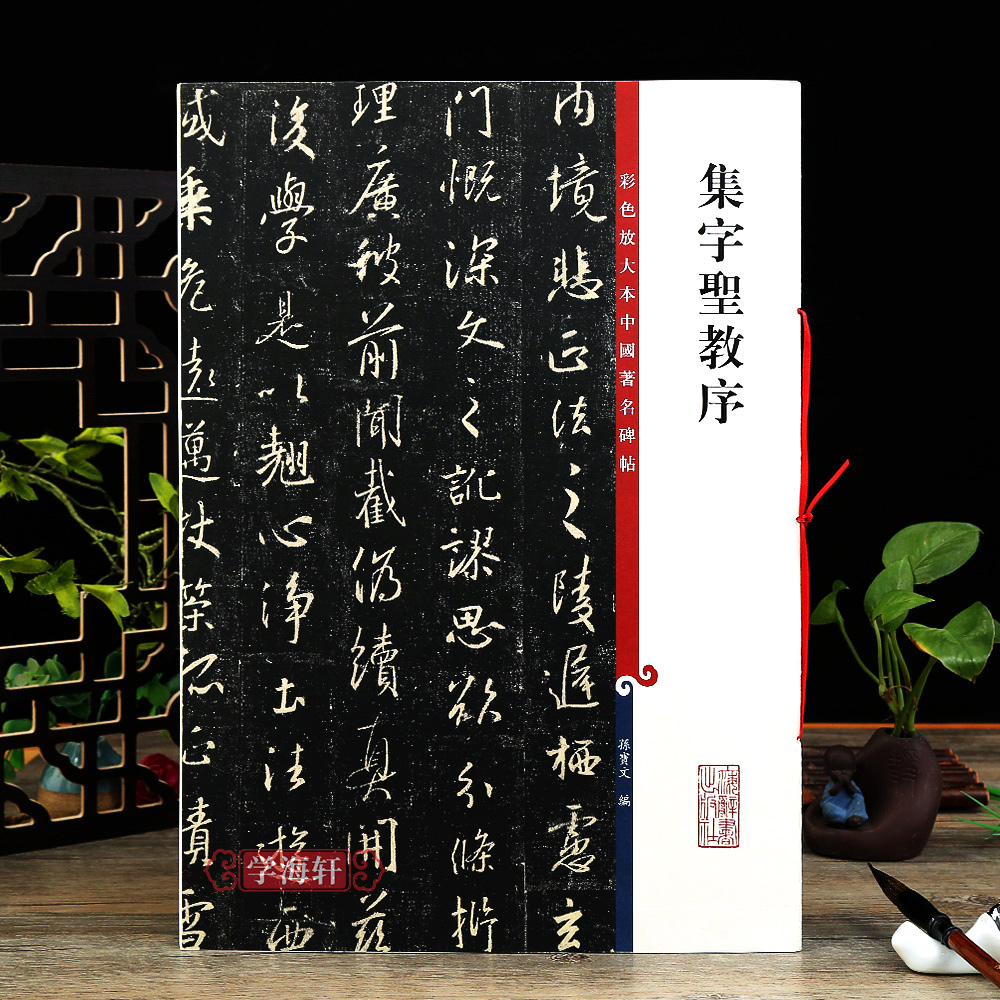 集字聖教序
彩色放大本中國著名碑帖
孫寶文 編
上海辭書出版社
内境悲正法之陵遲栖慮玄
門慨深文之訛謬思欲分條析
理廣彼前聞截偽續真開茲
後學是以翹心淨土法遊西
域乘危遠邁杖策孤征積雪
学海轩